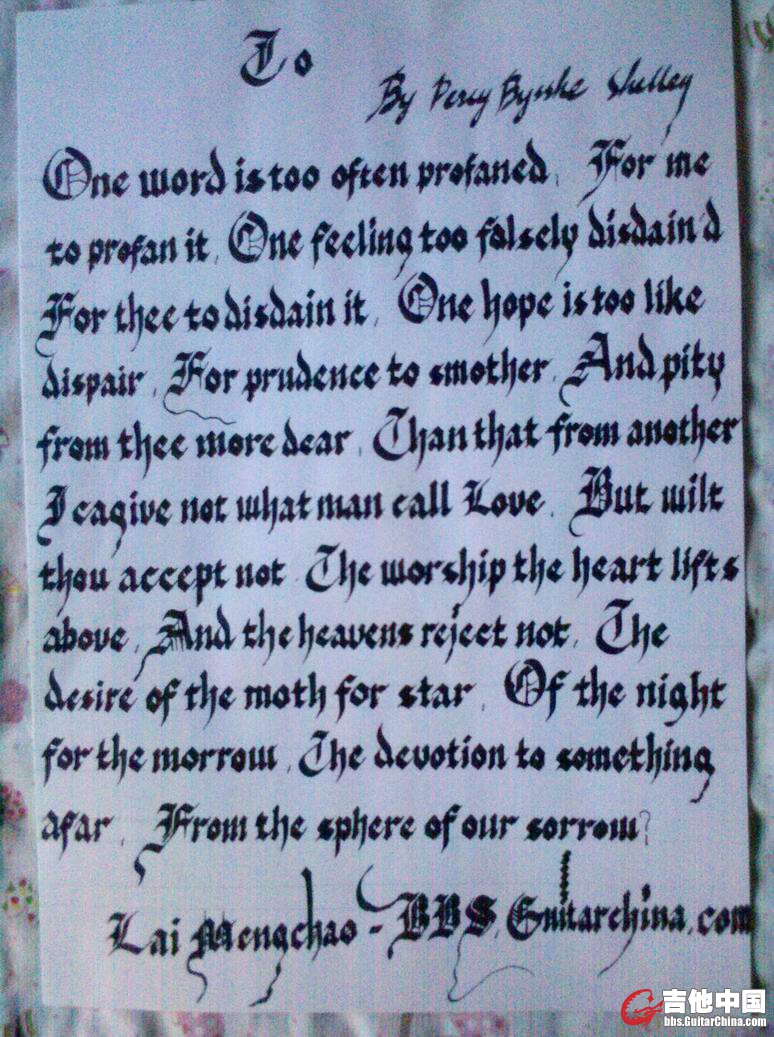 To
By Percy Bysshe Shelley
One word is too often profaned, For me
to profan it, One feeling too falsely disdain'd
For thee to disdain it, One hope is too like
dispair, For prudence to smother, And pity
from thee more dear, Than that from another
I cagive not what man call Love, But wilt
thou accept not The worship the heart lifts
above, And the heavens reject not, The
desire of the moth for star, Of the night
for the morrow, The devotion to something
afar, From the sphere of our sorrow?
Lai Mengchao - BBS.Guitarchina.com
吉他中国
bbs.GuitarChina.com